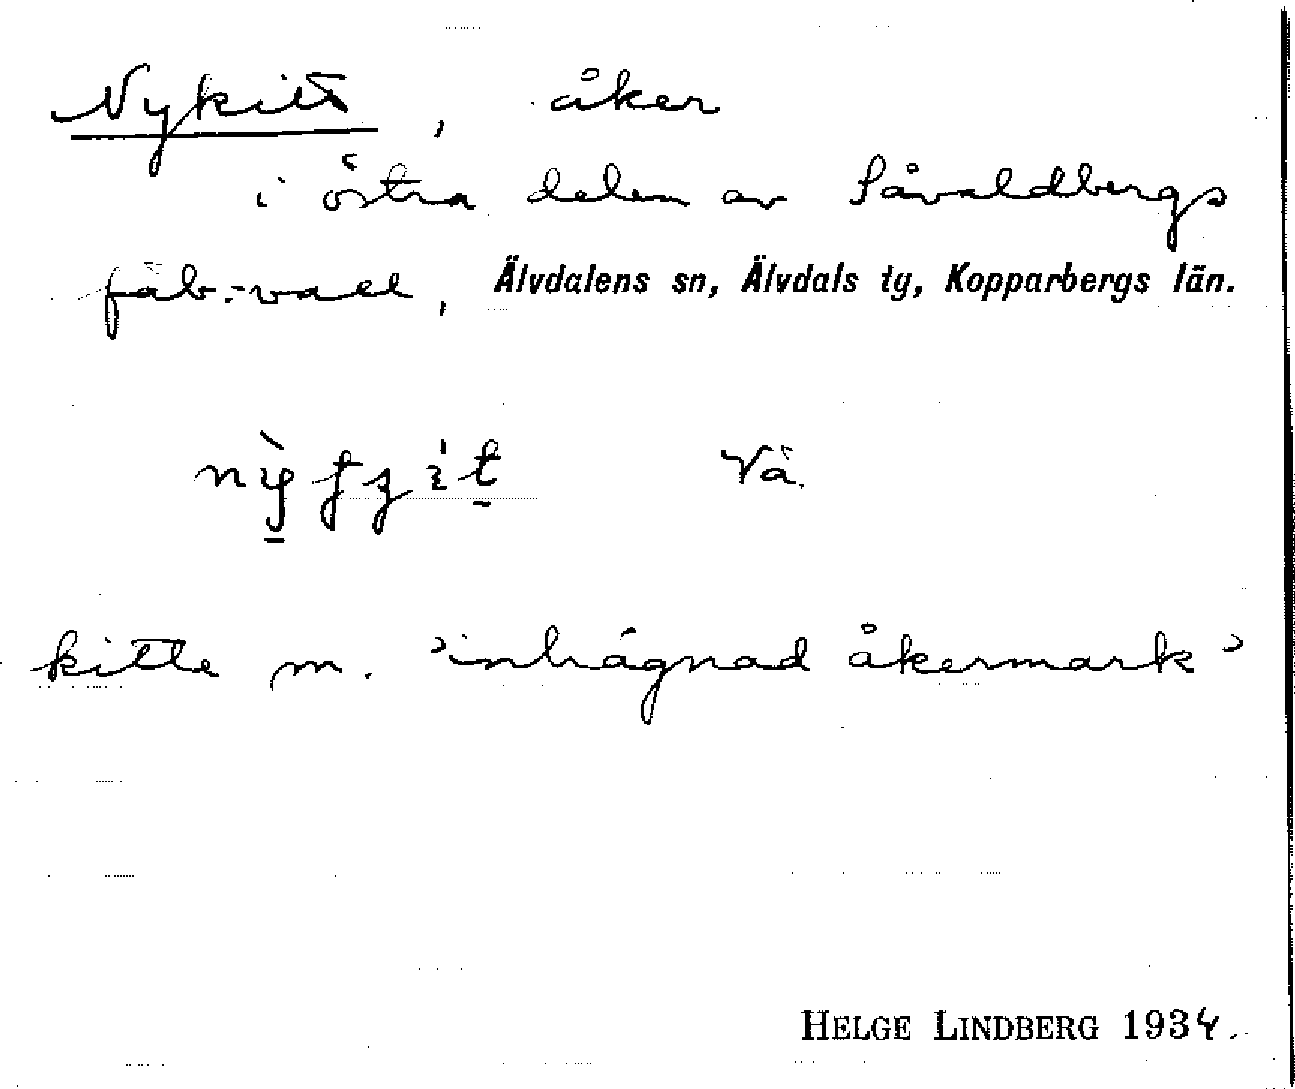 Nykitt, åker
i östra delen av Såvaldbergs
fäb.-vall, Älvdalens sn, Älvdals tg, Kopparbergs län.
Vä.
kitte m. 'inhägnad åkermark'
HELGE LINDBERG 1934.